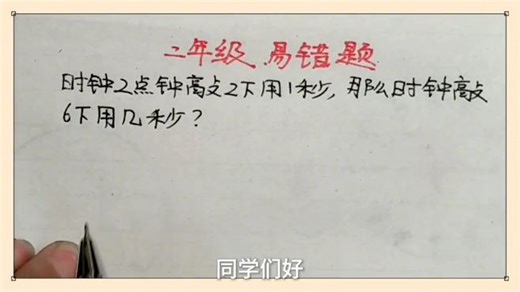 二年级 易错题
时钟2点钟敲2下用1秒，那么时钟敲
6下用几秒？
同学们好